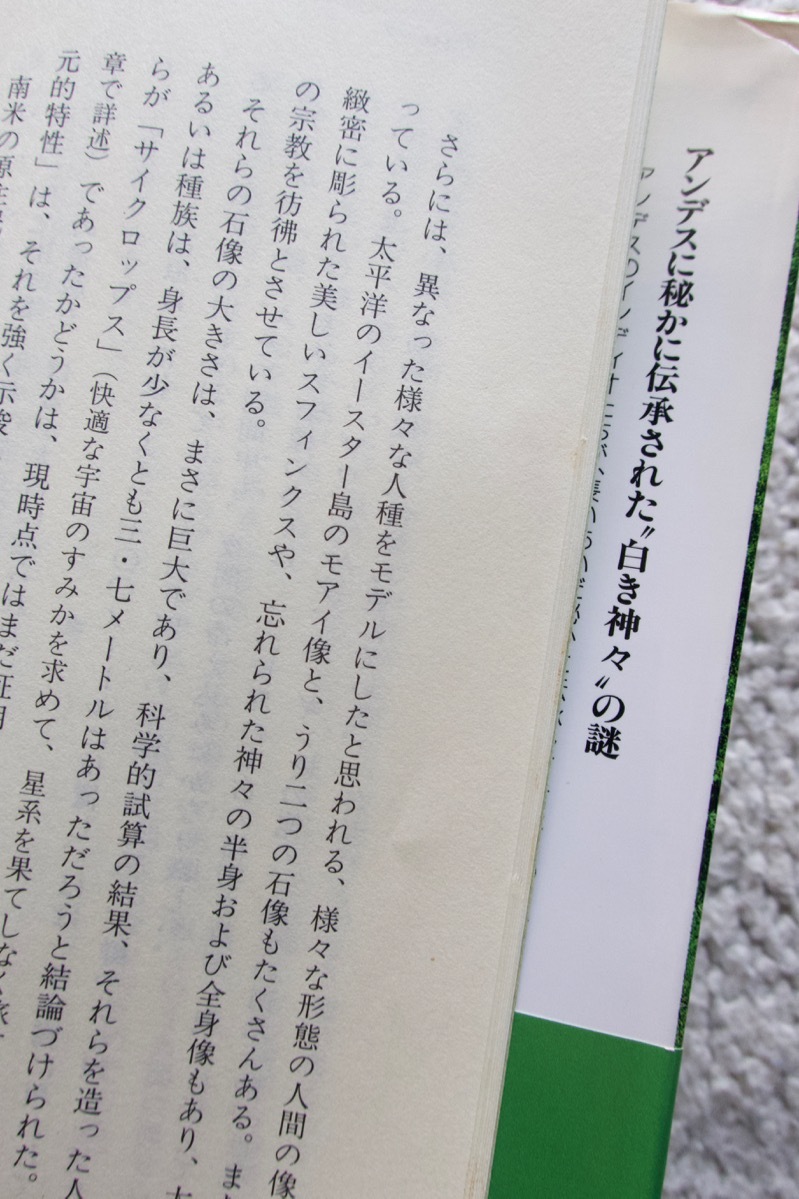 アンデスに秘かに伝承された〝白き神々〟の謎
アンデスのインディオたちが、長いあいだ秘か
さらには、異なった様々な人種をモデルにしたと思われる、様々な形態の人間の像
っている。太平洋のイースター島のモアイ像と、うり二つの石像もたくさんある。また
緻密に彫られた美しいスフィンクスや、忘れられた神々の半身および全身像もあり、
の宗教を彷彿とさせている。
それらの石像の大きさは、まさに巨大であり、科学的試算の結果、それらを造った人
あるいは種族は、身長が少なくとも三・七メートルはあっただろうと結論づけられた。
らが「サイクロップス」（快適な宇宙のすみかを求めて、星系を果てしなく旅
章で詳述）であったかどうかは、現時点ではまだ証明
元的特性」は、それを強く示唆
南米の原住